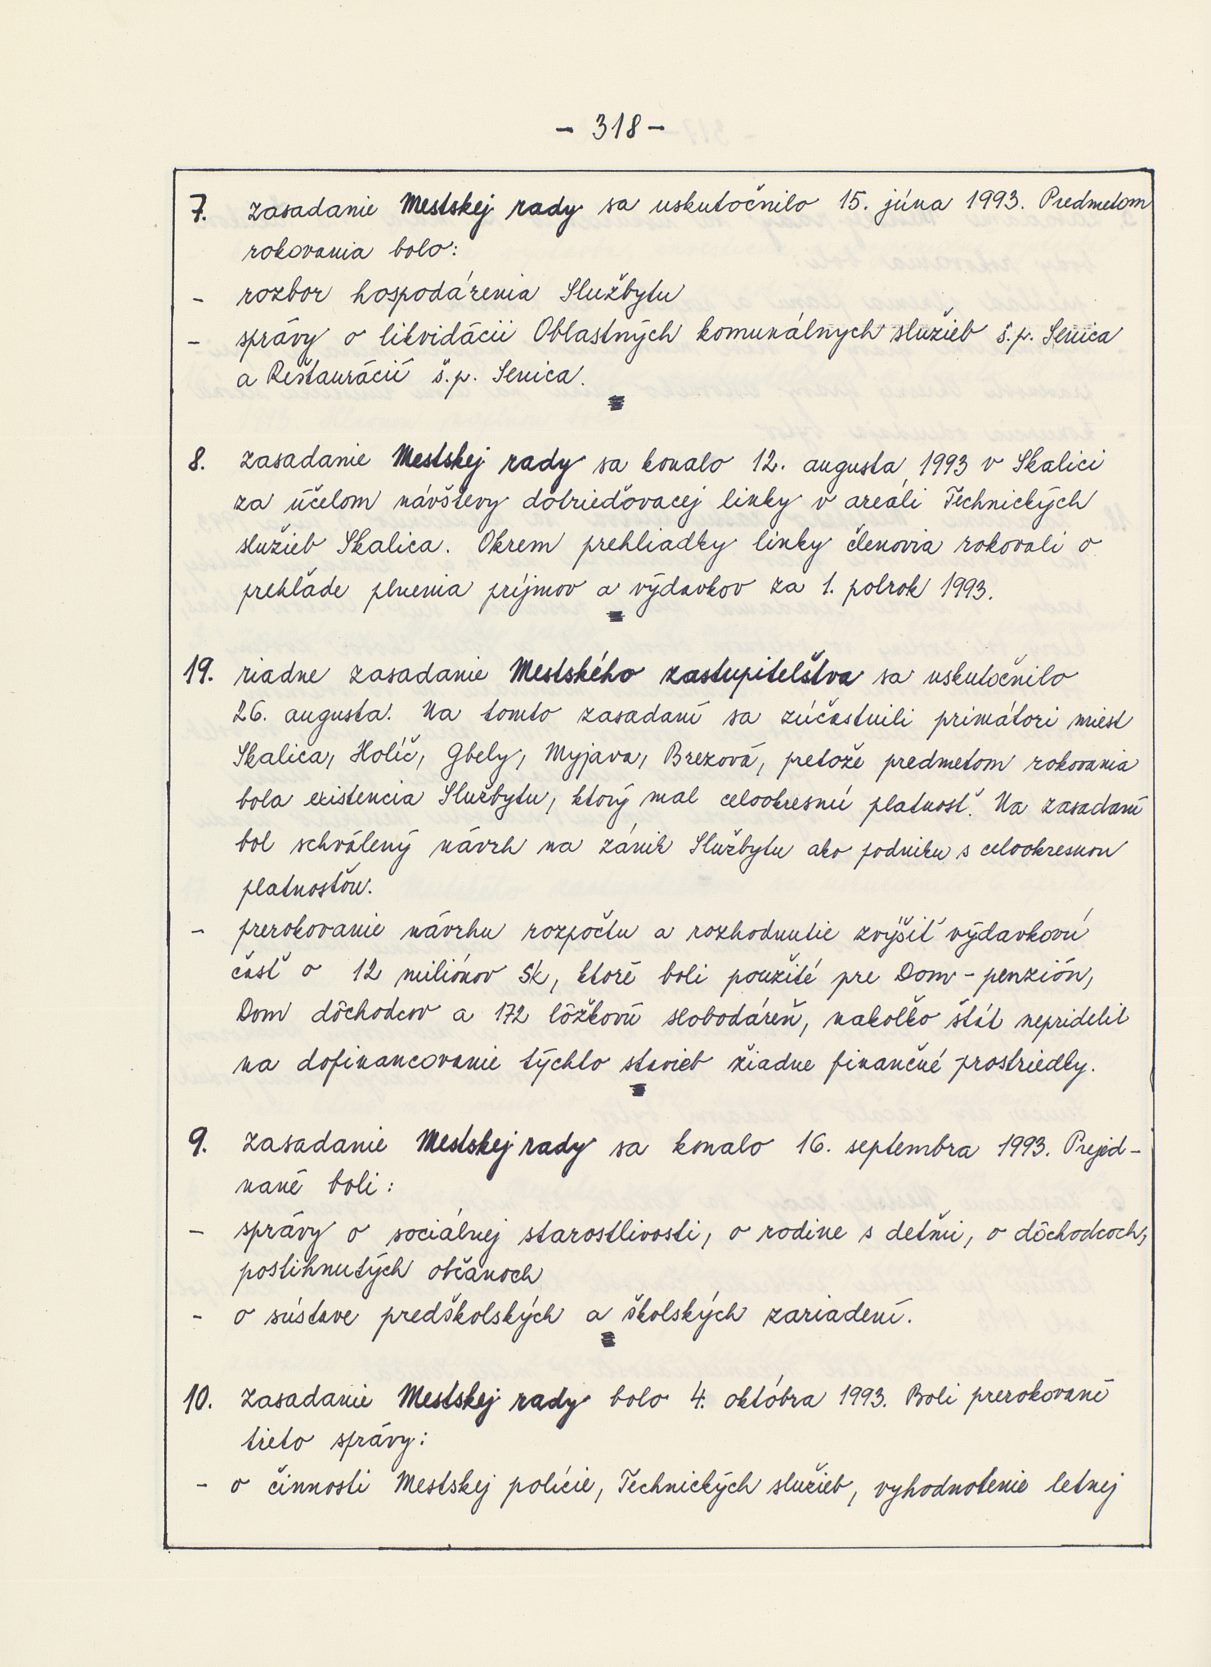 - 318 -
7. zasadanie Mestskej rady sa uskutočnilo 15. júna 1993. Predmetom
rokovania bolo:
- rozbor hospodárenia Službytu
- správy o likvidácii Oblastných komunálnych služieb š.p. Senica
a Reštaurácií š.p. Senica.
8. zasadanie Mestskej rady sa konalo 12. augusta 1993 v Skalici
za účelom návštevy dotrieďovacej linky v areáli Technických
služieb Skalica. Okrem prehliadky linky členovia rokovali o
prehľade plnenia príjmov a výdavkov za 1. polrok 1993.
19. riadne zasadanie Mestského zastupiteľstva sa uskutočnilo
26. augusta. Na tomto zasadaní sa zúčastnili primátori miest
Skalica, Holíč, Gbely, Myjava, Brezová, pretože predmetom rokovania
bola existencia Službytu, ktorý mal celookresnú platnosť. Na zasadaní
bol schválený návrh na zánik Službytu ako podniku s celookresnou
platnosťou.
- prerokovanie návrhu rozpočtu a rozhodnutie zvýšiť výdavkovú
časť o 12 miliónov Sk, ktoré boli použité pre Dom-penzión,
Dom dôchodcov a 172 lôžkovú slobodáreň, nakoľko štát nepridelil
na dofinancovanie týchto stavieb žiadne finančné prostriedky.
9. zasadanie Mestskej rady sa konalo 16. septembra 1993. Prejed-
nané boli:
- správy o sociálnej starostlivosti, o rodine s deťmi, o dôchodcoch,
postihnutých občanoch
- o sústave predškolských a školských zariadení.
10. zasadanie Mestskej rady bolo 4. októbra 1993. Boli prerokované
tieto správy:
- o činnosti Mestskej polície, Technických služieb, vyhodnotenie letnej